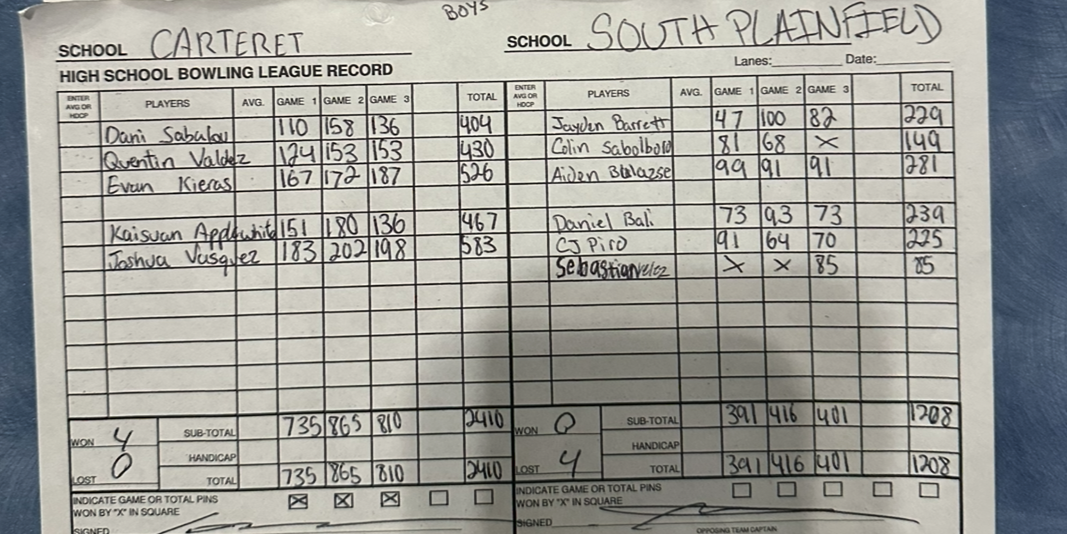 BOYS
SCHOOL CARTERET SCHOOL SOUTH PLAINFIELD
HIGH SCHOOL BOWLING LEAGUE RECORD Lanes: Date:
ENTER AVG OR HDCP PLAYERS AVG. GAME 1 GAME 2 GAME 3 TOTAL ENTER AVG OR HDCP PLAYERS AVG. GAME 1 GAME 2 GAME 3 TOTAL
Dani Sabalou 110 158 136 404 Jayden Barrett 47 100 82 229
Quentin Valdez 124 153 153 430 Colin Sabolboro 81 68 X 149
Evan Kieras 167 172 187 526 Aiden 99 91 91 281
Kaisuan 151 180 136 467 Daniel Bali 73 93 73 239
Joshua Vasquez 183 202 198 583 CJ Piro 91 64 70 225
Sebastian velez X X 85 85
WON 4 SUB-TOTAL 735 865 810 2410 WON 0 SUB-TOTAL 391 416 401 1208
HANDICAP HANDICAP
LOST 0 TOTAL 735 865 810 2410 LOST 4 TOTAL 391 416 401 1208
INDICATE GAME OR TOTAL PINS X X X INDICATE GAME OR TOTAL PINS
WON BY "X" IN SQUARE WON BY "X" IN SQUARE
SIGNED SIGNED
OPPOSING TEAM CAPTAIN